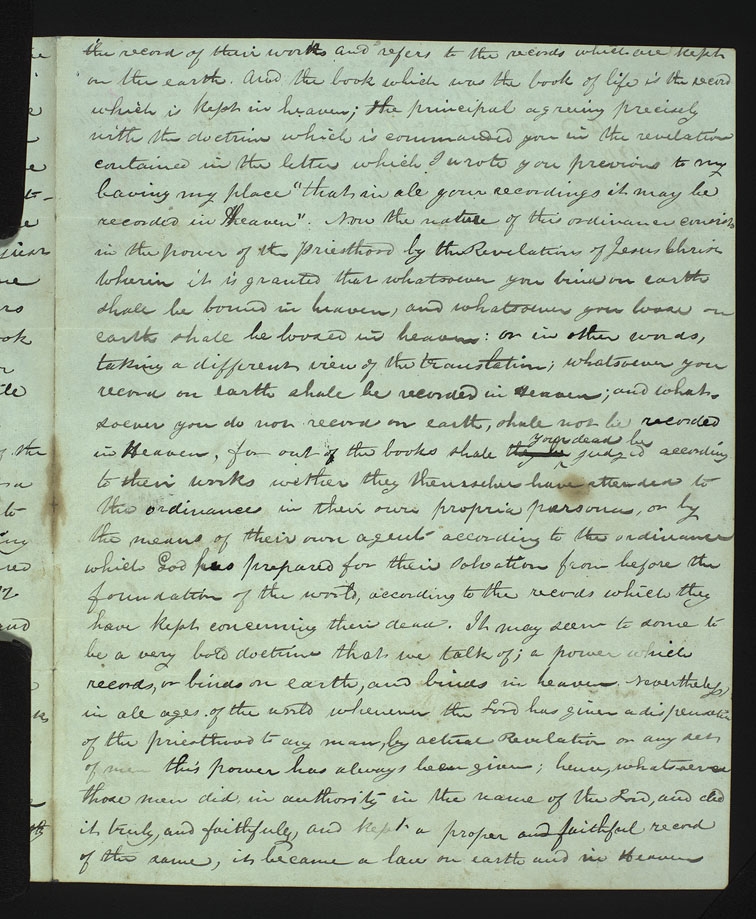 the record of their works and refers to the records which are kept
on the earth. And the book which was the book of life is the record
which is kept in heaven; the principal agreeing precisely
with the doctrine which is commanded you in the revelation
contained in the letter which I wrote you previous to my
leaving my place "that in all your recordings it may be
recorded in Heaven". Now the nature of this ordinance consists
in the power of the priesthood by the Revelations of Jesus Christ
wherein it is granted that whatsoever you bind on earth
shall be bound in heaven, and whatsoever you loose on
earth shall be loosed in heaven: or in other words,
taking a different view of the translation; whatsoever you
record on earth shall be recorded in Heaven; and what-
soever you do not record on earth, shall not be recorded
in Heaven, for out of the books shall they be your dead be judged according
to their works wether they themselves have attended to
the ordinances in their own propria persona, or by
the means of their own agents according to the ordinance
which God has prepared for their salvation from before the
foundation of the world, according to the records which they
have kept concerning their dead. It may seem to some to
be a very bold doctrine that we talk of; a power which
records, or binds on earth, and binds in heaven Nevertheless
in all ages of the world whenever the Lord has given a dispensation
of the priesthood to any man, by actual Revelation or any set
of men this power has always been given; hence, whatsoever
those men did, in authority in the name of the Lord, and did
it truly, and faithfully, and kept a proper and faithful record
of the same, it became a law on earth and in Heaven